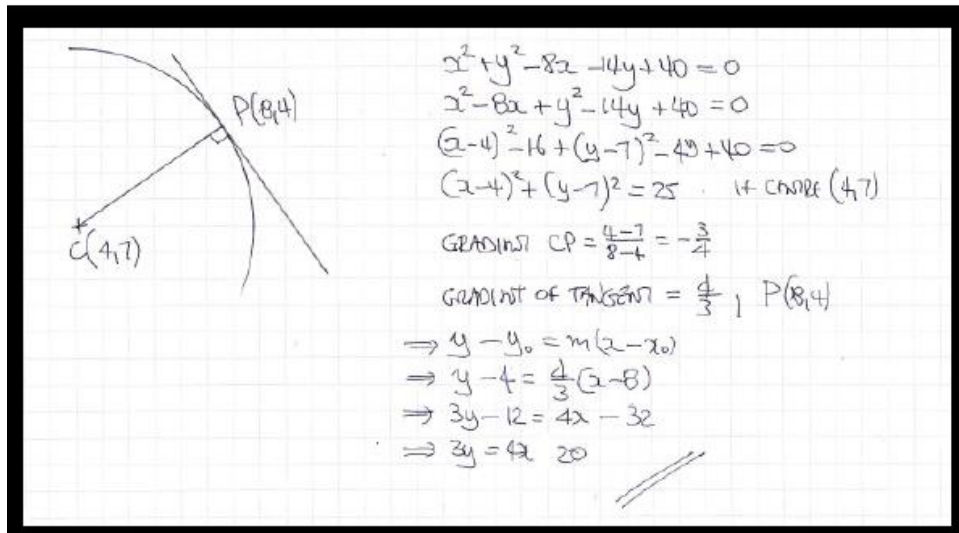 P(8,4)
C(4,7)
x²+y²-8x-14y+40=0
x²-8x+y²-14y+40=0
(x-4)²-16+(y-7)²-49+40=0
(x-4)²+(y-7)²=25 . IE CENTRE (4,7)
GRADIENT CP = \frac{4-7}{8-4} = -\frac{3}{4}
GRADIENT OF TANGENT = \frac{4}{3} , P(8,4)
⇒ y-y₀=m(x-x₀)
⇒ y-4=\frac{4}{3}(x-8)
⇒ 3y-12=4x-32
⇒ 3y=4x 20